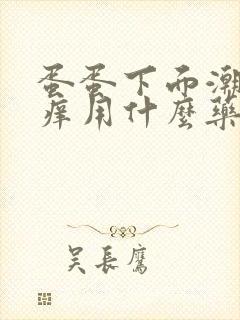 蛋蛋下面潮
痒用什麼藥
吴長鷹